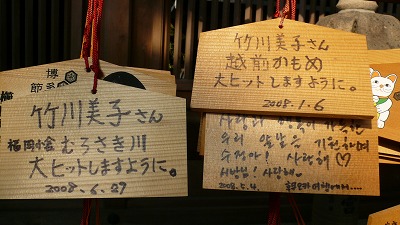 竹川美子さん
福岡小倉 むらさき川
大ヒットしますように。
2008.6.27
竹川美子さん
越前かもめ
大ヒットしますように。
2008.1.6
우리 앞날을 기원하며
수정아! 사랑해♡
서방님! 사랑해.
2008.5.4.